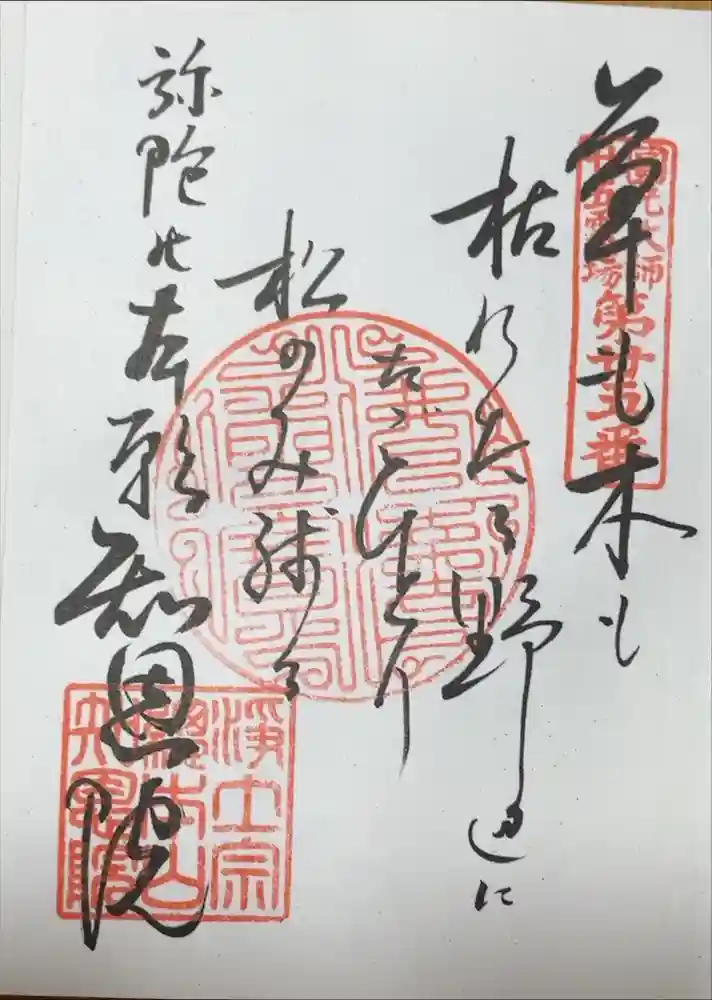 草も木も
枯れたる野辺に
たゞひとり
松のみ残る
弥陀の本願
知恩院
圓光大師
廿五霊場
第廿五番
浄土宗
總本山
知恩院